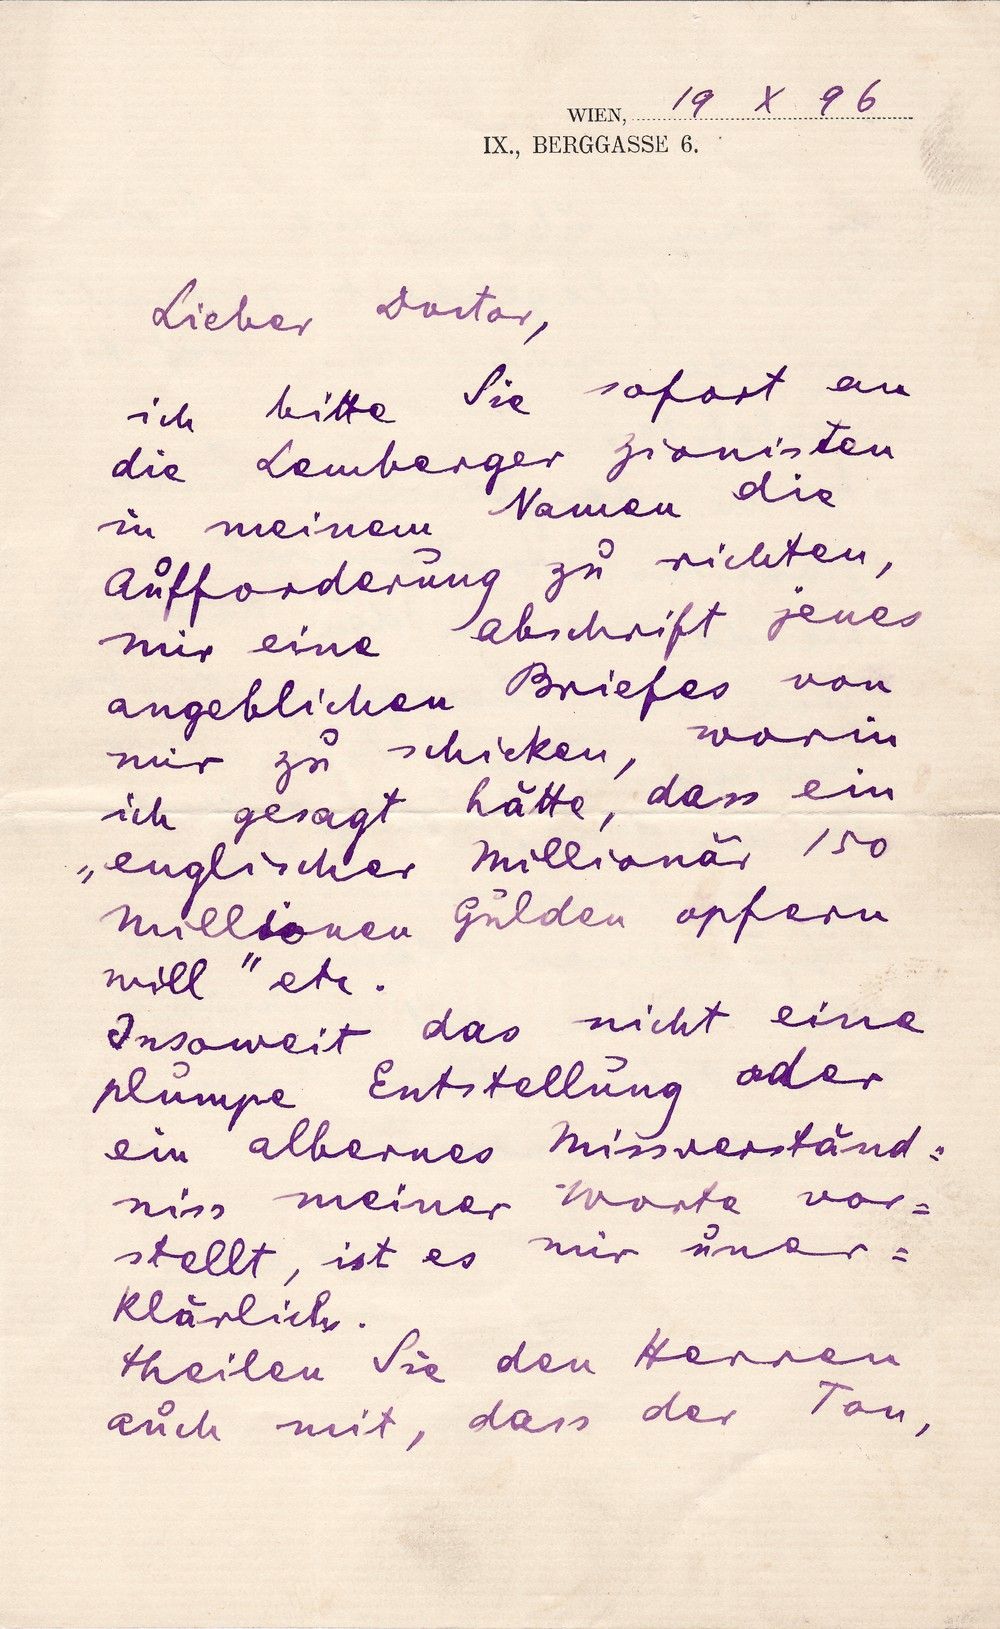 WIEN, 19 X 96
IX., BERGGASSE 6.
Lieber Doctor,
ich bitte Sie sofort an
die Lemberger Zionisten
in meinem Namen die
Aufforderung zu richten,
mir eine Abschrift jenes
angeblichen Briefes von
mir zu schicken, worin
ich gesagt hätte, dass ein
„englischer Millionär 150
Millionen Gulden opfern
will" etc.
Insoweit das nicht eine
plumpe Entstellung oder
ein albernes Missverständ=
niss meiner Worte vor=
stellt, ist es mir uner=
klärlich.
Theilen Sie den Herren
auch mit, dass der Ton,